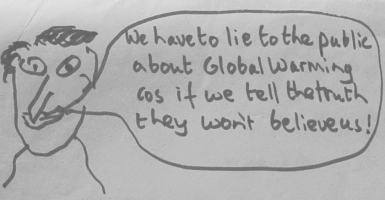 We have to lie to the public
about Global Warming
cos if we tell the truth
they won't believe us!